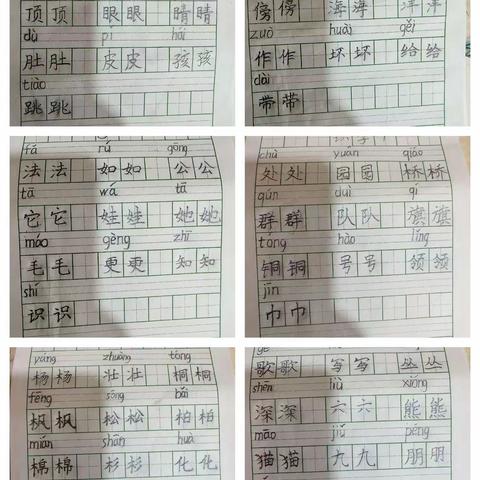 顶顶 眼眼 晴晴
dù pí hái
肚肚 皮皮 孩孩
tiào
跳跳
傍傍 海海 洋洋
zuò huài gěi
作作 坏坏 给给
dài
带带
fǎ rú gōng
法法 如如 公公
tā wá tā
它它 娃娃 她她
máo gèng zhī
毛毛 更更 知知
shí
识识
chù yuán qiáo
处处 园园 桥桥
qún duì qí
群群 队队 旗旗
tóng hào lǐng
铜铜 号号 领领
jīn
巾巾
yáng zhuàng tóng
杨杨 壮壮 桐桐
fēng sōng bǎi
枫枫 松松 柏柏
mián shān huà
棉棉 杉杉 化化
gē
歌歌 写写 丛丛
shēn liù xióng
深深 六六 熊熊
māo jiǔ péng
猫猫 九九 朋朋